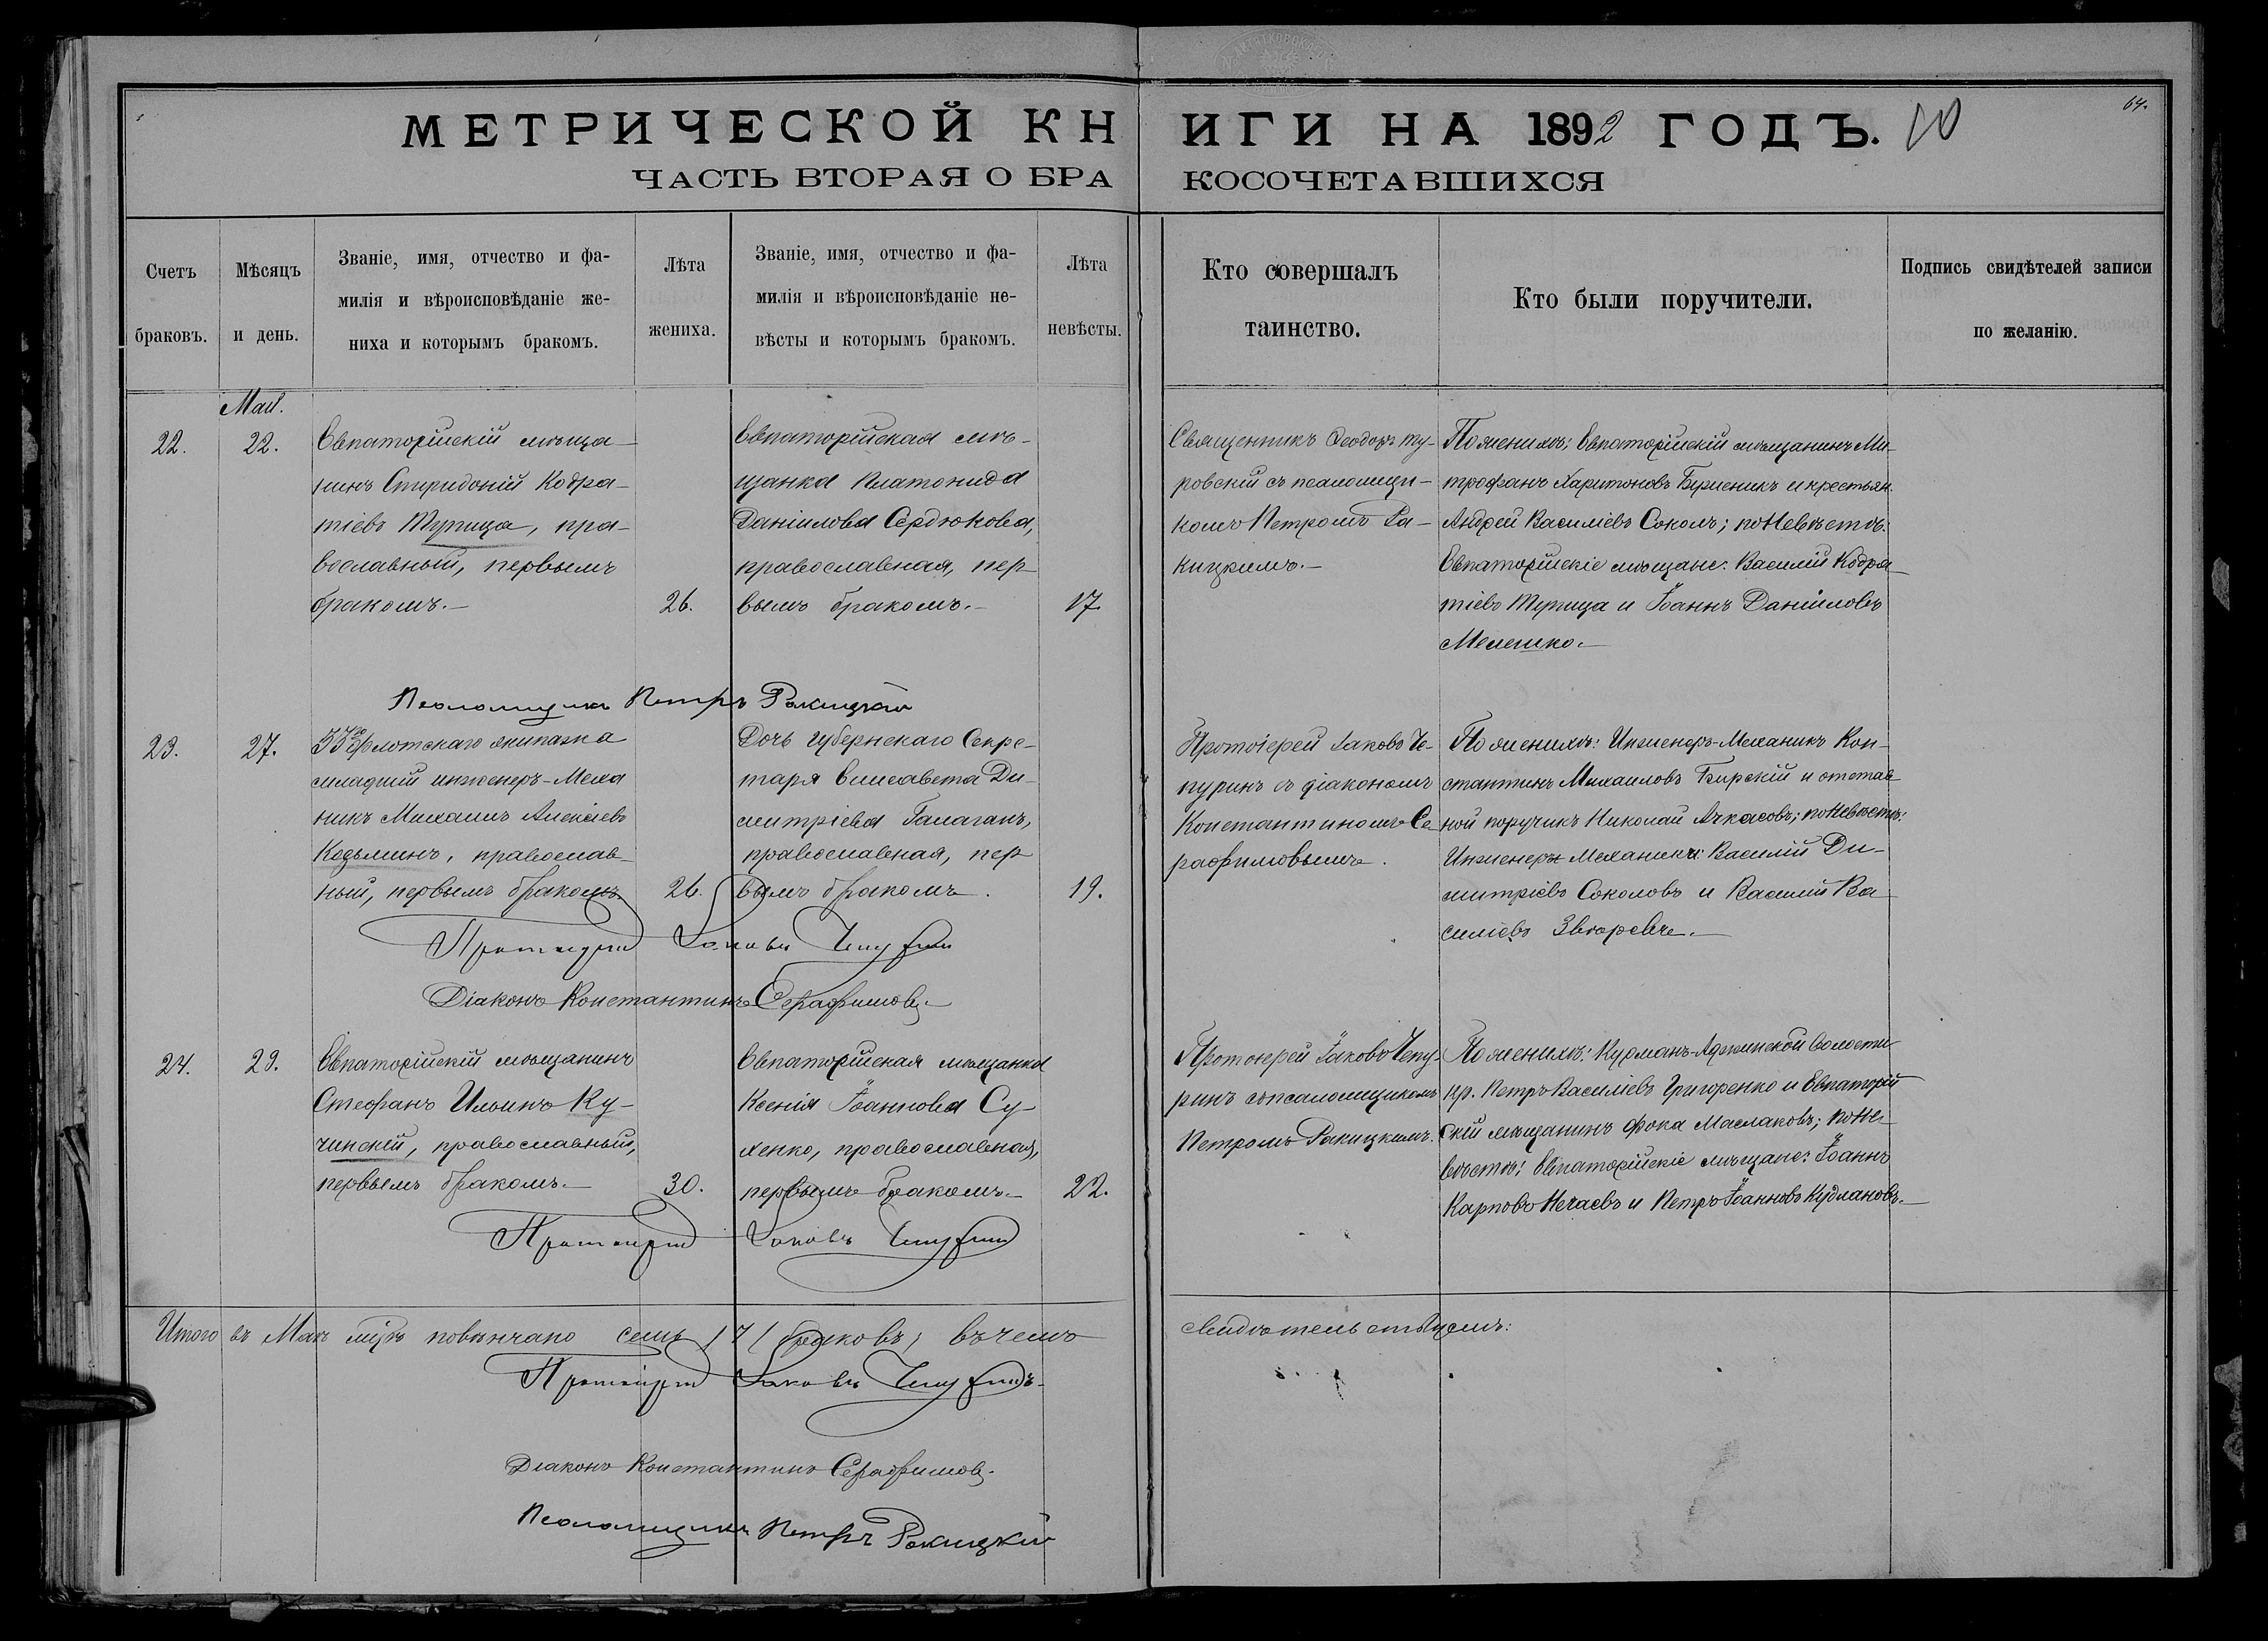 64.
МЕТРИЧЕСКОЙ КНИГИ НА 1892 ГОДЪ. 10
ЧАСТЬ ВТОРАЯ О БРАКОСОЧЕТАВШИХСЯ
Счетъ
браковъ.
Мѣсяцъ
и день.
Званіе, имя, отчество и фа-
милія и вѣроисповѣданіе же-
ниха и которымъ бракомъ.
Лѣта
жениха.
Званіе, имя, отчество и фа-
милія и вѣроисповѣданіе не-
вѣсты и которымъ бракомъ.
Лѣта
невѣсты.
Кто совершалъ
таинство.
Кто были поручители.
Подпись свидѣтелей записи
по желанію.
Май.
22.
22.
Евпаторійскій мѣща-
нинъ Спиридоній Кодра-
тіевъ Турица, пра-
вославный, первымъ
бракомъ.
26.
Евпаторійская мѣ-
щанка Платонида
Даніилова Сердюкова,
православная, пер-
вымъ бракомъ.
17.
Священникъ Ѳеодоръ Ту-
ровскій съ псаломщи-
комъ Петромъ Ра-
кицкимъ.
По женихѣ: Евпаторійскій мѣщанинъ Ми-
трофанъ Харитоновъ и крестьян.
Андрей Василіевъ Соколъ; по невѣстѣ:
Евпаторійскіе мѣщане: Василій Кодра-
тіевъ Турица и Іоаннъ Даніиловъ
Мелешко.
Псаломщикъ Петръ Ракицкій
23.
27.
флотскаго экипажа
младшій инженеръ-Меха
никъ Михаилъ Алексіевъ
Кодьминъ, православ-
ный, первымъ бракомъ.
26.
Дочь Губернскаго Секре-
таря Елисавета Ди-
митріева Галаганъ,
православная, пер-
вымъ бракомъ.
19.
Протоіерей Іаковъ Че-
пуринъ съ діакономъ
Константиномъ Се-
рафимовымъ.
По женихѣ: Инженеръ-Механикъ Кон-
стантинъ Михаиловъ Бирскій и отстав-
ной поручикъ Николай Ачкасовъ; по невѣстѣ:
Инженеры Механики: Василій Ди-
митріевъ Соколовъ и Василій Ва-
силіевъ
Протоіерей Іаковъ Чепуринъ
Діаконъ Константинъ Серафимовъ.
24.
29.
Евпаторійскій мѣщанинъ
Стефанъ Ильинъ Ку-
чинскій, православный,
первымъ бракомъ.
30.
Евпаторійская мѣщанка
Ксенія Іоаннова Су-
хенко, православная,
первымъ бракомъ.
22.
Протоіерей Іаковъ Чепу-
ринъ съ псаломщикомъ
Петромъ Ракицкимъ.
По женихѣ: Курманъ-Аджинской волости
кр. Петръ Василіевъ Григоренко и Евпаторій
скій мѣщанинъ Фока Маслаковъ; по не-
вѣстѣ: Евпаторійскіе мѣщане: Іоаннъ
Карповъ Нечаевъ и Петръ Іоанновъ Кудлановъ.
Протоіерей Іаковъ Чепуринъ
Итого въ Маѣ мцѣ повѣнчано семь /7/ браковъ, въ чемъ свидѣтельствуемъ:
Протоіерей Іаковъ Чепуринъ.
Діаконъ Константинъ Серафимовъ.
Псаломщикъ Петръ Ракицкій